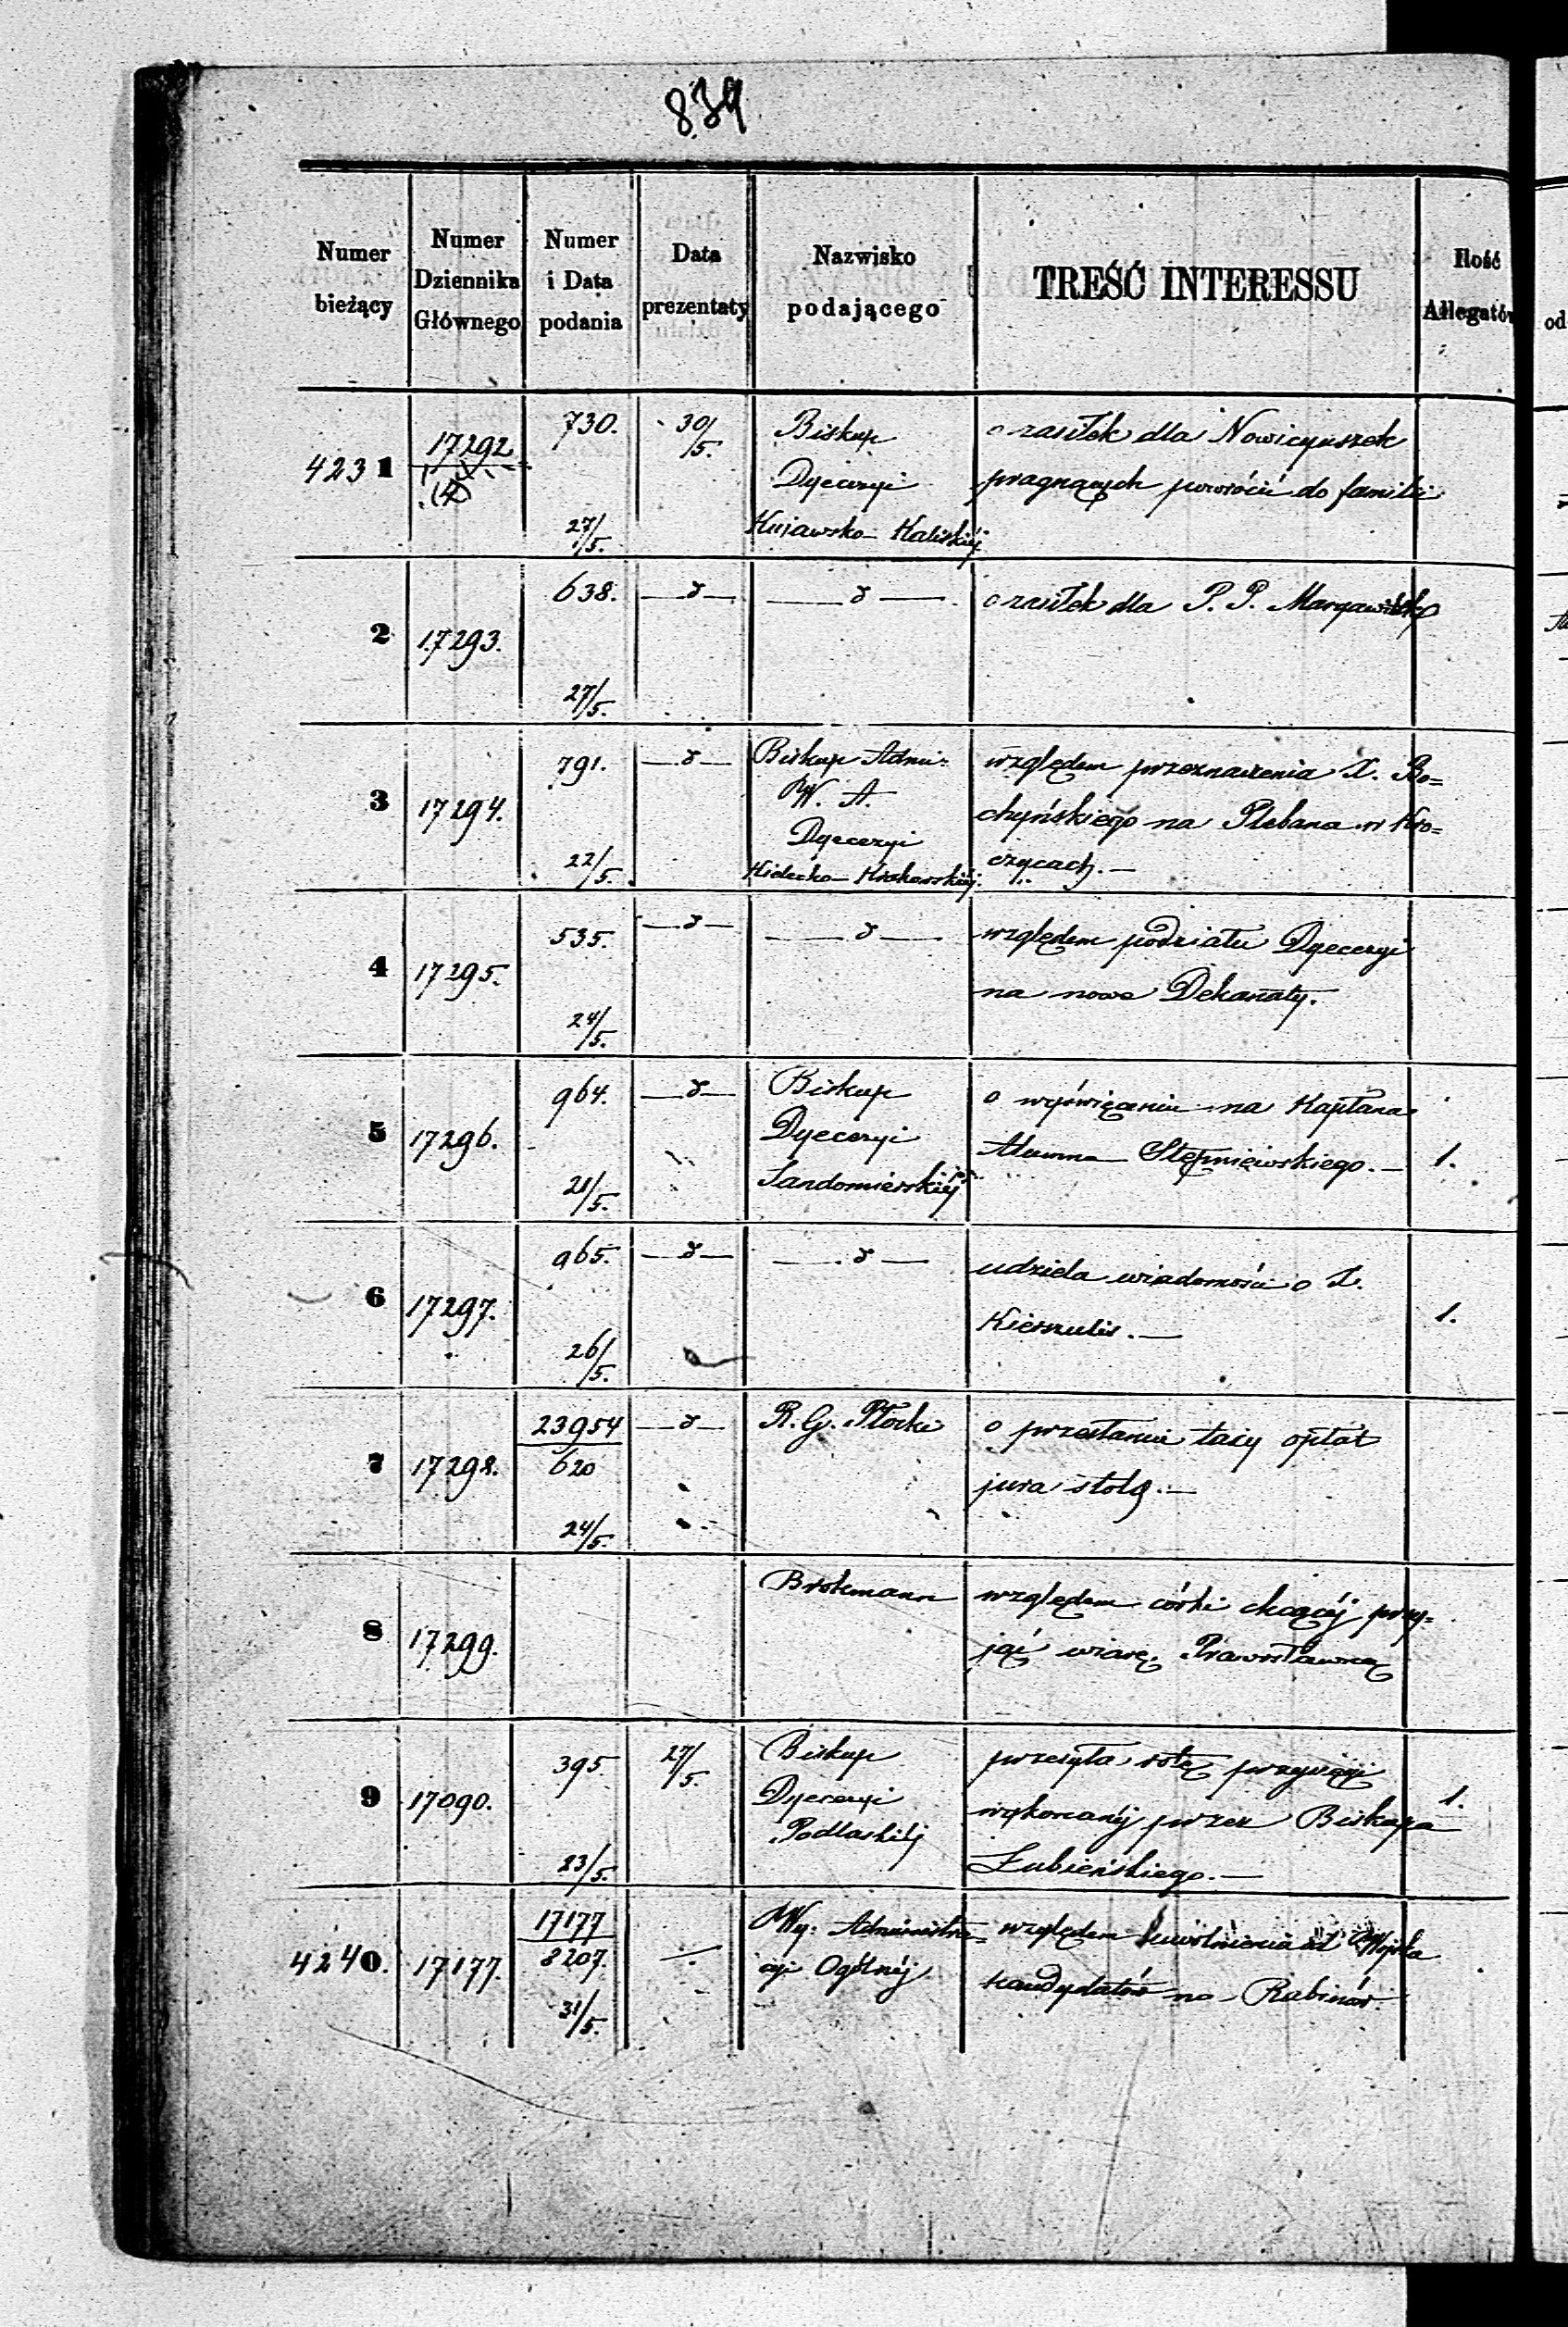 839
Numer bieżący
Numer Dziennika Głównego
Numer i Data podania
Data prezentaty
Nazwisko podającego
TREŚĆ INTERESSU
Ilość Allegatów
od
4231
17292
730.
27/5.
30/5.
Biskup
Dyecezyi
Kujawsko-Kaliskiéj
o zasiłek dla Nowicyuszek
pragnących powrócić do familii
2
17293.
638.
27/5.
—d—
—d—
o zasiłek dla P. P. Maryawitek
3
17294.
791.
22/5.
—d—
Biskup Admi-
W. A.
Dyecezyi
Kielecko-Krakowskiéj.
względem przeznaczenia X. Bo=
chyńskiego na Plebana w Kro=
czycach.—
4
17295.
535.
24/5.
—d—
—d—
względem podziału Dyecezyi
na nowe Dekanaty.
5
17296.
964.
21/5.
—d—
Biskup
Dyecezyi
Sandomierskiéj
o wyświęceniu na Kapłana
Alumna Stępniewskiego.—
1.
6
17297.
965.
26/5.
—d—
—d—
udziela wiadomości o X.
Kieszulis.—
1.
7
17298.
23954
620
24/5.
—d—
R. G. Płocki
o przesłaniu taxy opłat
jura stolę.—
8
17299.
Brokmann
względem córki chcącéj przy=
jąć wiarę Prawosławną
9
17090.
395
23/5.
27/5.
Biskup
Dyecezyi
Podlaskiéj
przesyła rotę przysięgi
wykonanéj przez Biskupa
Łubieńskiego.—
1.
4240.
17177.
17177
8207.
31/5.
Wy. Administra=
cyi Ogólnéj
względem uwolnienia od Wojska
kandydatów na Rabinów.